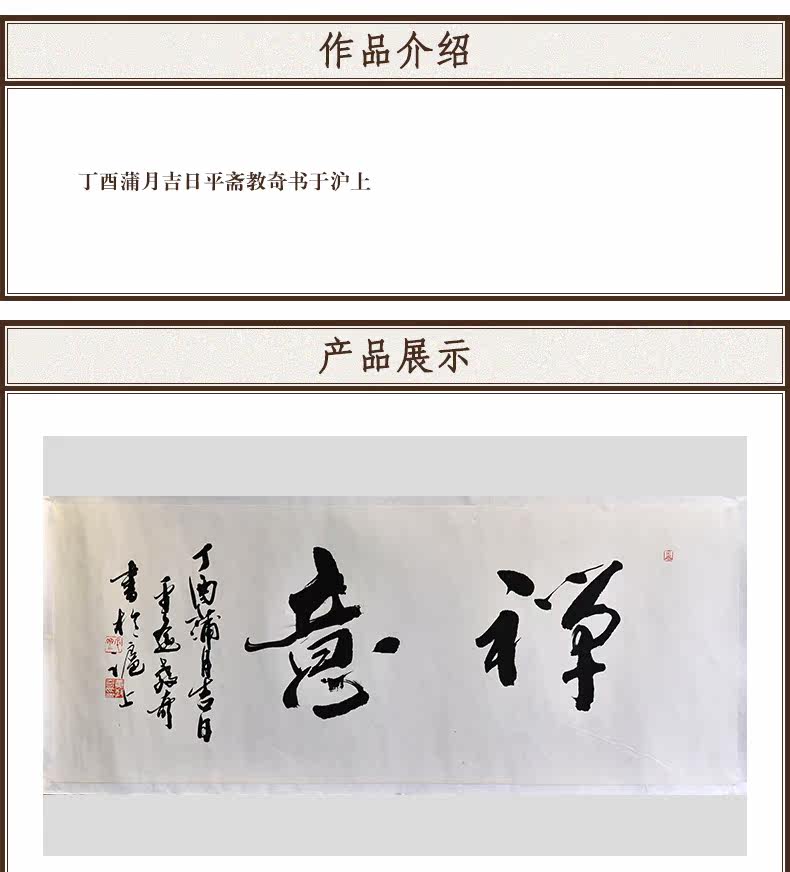 作品介绍
丁酉蒲月吉日平斋教奇书于沪上
产品展示
禅意
丁酉蒲月吉日
平斋教奇
書於滬上